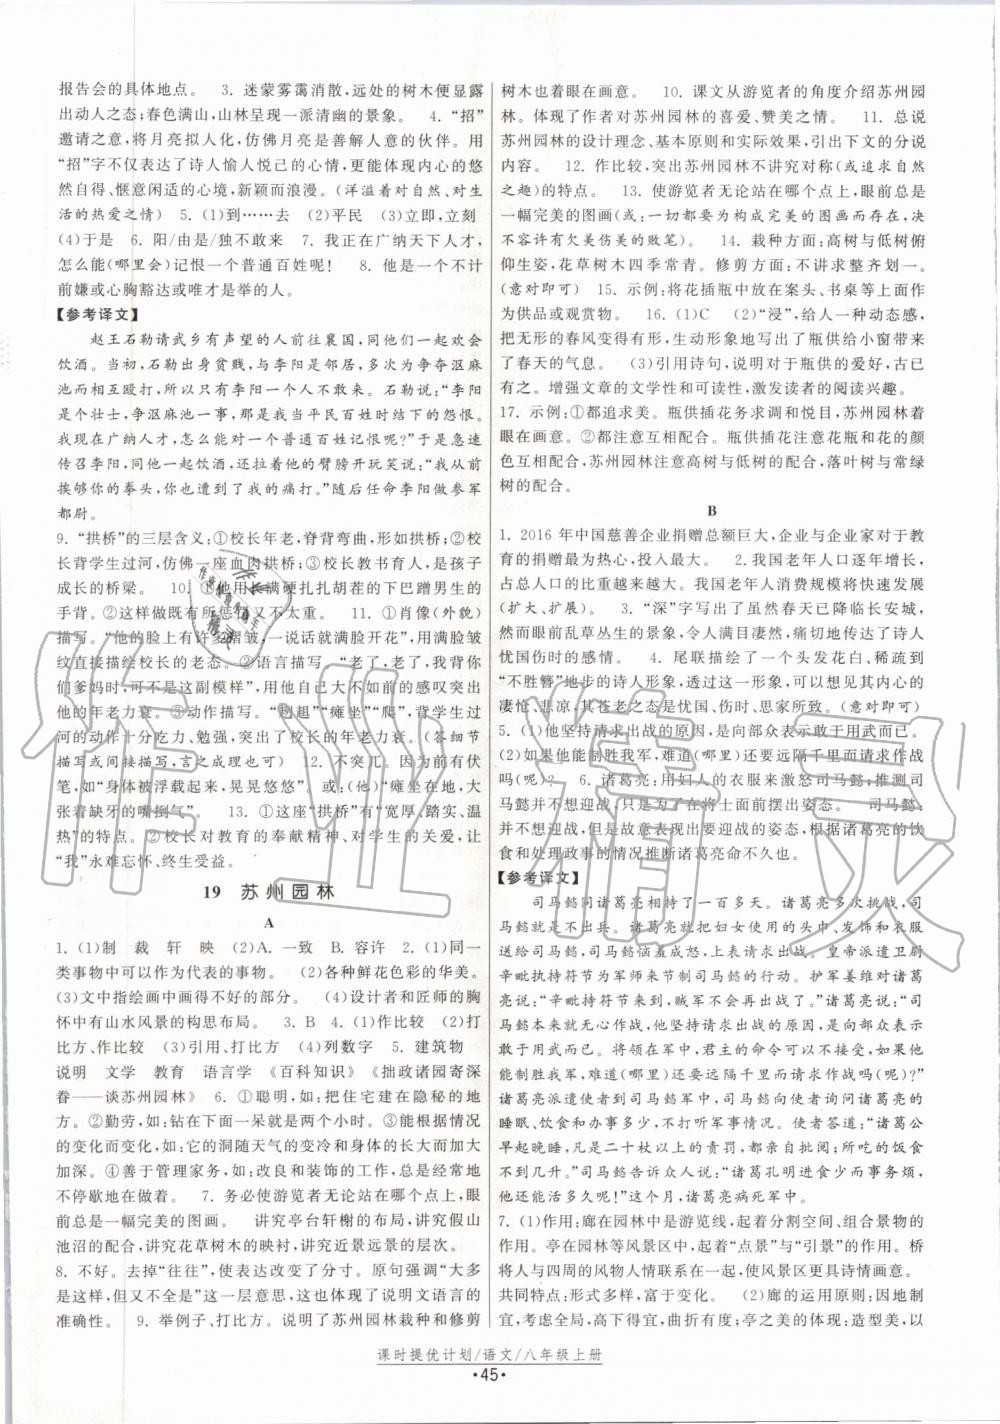 报告会的具体地点。 3. 迷蒙雾霭消散,远处的树木便显露
出动人之态;春色满山,山林呈现一派清幽的景象。 4. “招”
邀请之意,将月亮拟人化,仿佛月亮是善解人意的伙伴。用
“招”字不仅表达了诗人愉人悦己的心情,更能体现内心的悠
然自得、惬意闲适的心境,新颖而浪漫。(洋溢着对自然、对生
活的热爱之情) 5. (1)到……去 (2)平民 (3)立即,立刻
(4)于是 6. 阳/由是/独不敢来 7. 我正在广纳天下人才,
怎么能(哪里会)记恨一个普通百姓呢! 8. 他是一个不计
前嫌或心胸豁达或唯才是举的人。
【参考译文】
赵王石勒请武乡有声望的人前往襄国,同他们一起欢会
饮酒。当初,石勒出身贫贱,与李阳是邻居,多次为争夺沤麻
池而相互殴打,所以只有李阳一个人不敢来。石勒说:“李阳
是个壮士,争沤麻池一事,那是我当平民百姓时结下的怨恨。
我现在广纳人才,怎么能对一个普通百姓记恨呢?”于是急速
传召李阳,同他一起饮酒,还拉着他的臂膀开玩笑说:“我从前
挨够你的拳头,你也遭到了我的痛打。”随后任命李阳做参军
都尉。
9. “拱桥”的三层含义:①校长年老,脊背弯曲,形似拱桥;②校
长背学生过河,仿佛一座血肉拱桥;③校长教书育人,是孩子
成长的桥梁。 10. ①他用满硬扎扎胡茬的下巴蹭男生的
手背。②这样做既有所惩戒又不太重。 11. ①肖像(外貌)
描写。“他的脸上有许多褶皱,一说话就满脸开花”,用满脸皱
纹这类描写校长的老态。②语言描写。“老了,老了,我背你
们爹妈时,可不是这副模样”,用今不如前的感叹突出
他的年老力衰。③动作描写。“趔趄”“瘫坐”“爬”,背学生过
河的动作十分吃力、勉强,突出了校长的年老力衰。(答细节
描写或间接描写,言之成理也可) 12. 不突兀。因为前有伏
笔,如“身体被浮载起来,晃晃悠悠”,或:(他)“瘫坐在地,大
张着缺牙的嘴捯气”。 13. ①这座“拱桥”有“宽厚、踏实、温
热”的特点。②校长对教育的奉献精神、对学生的关爱,让
“我”永难忘怀、终生受益。
19 苏州园林
A
1. (1)制 裁 轩 映 (2)A. 一致 B. 容许 2. (1)同一
类事物中可以作为代表的事物。 (2)各种鲜花色彩的华美。
(3)文中指绘画中画得不好的部分。 (4)设计者和匠师的胸
怀中有山水风景的构思布局。 3. B 4. (1)作比较 (2)打
比方、作比较 (3)引用、打比方 (4)列数字 5. 建筑物
说明 文学 教育 语言学 《百科知识》《拙政诸园寄深
眷——谈苏州园林》 6. ①聪明,如:把住宅建在隐秘的地
方。②勤劳,如:钻在下面一呆就是两个小时。③能根据情况
的变化而变化,如:它的洞随天气的变冷和身体的长大而加大
加深。④善于管理家务,如:改良和装饰的工作,总是在无休
不停歇地在做着。 7. 务必使游览者无论站在哪个点上,眼
前总是一幅完美的图画。 讲究亭台轩榭的布局,讲究假山
池沼的配合,讲究花草树木的映衬,讲究近景远景的层次。
8. 不好。去掉“往往”,使表达改变了分寸。原句强调“大多
是这样,但又不全是”这一层意思,这体现了说明文语言的
的准确性。 9. 举例子、打比方。说明了苏州园林栽种和修剪
树木也着眼在画意。 10. 课文从游览者的角度介绍苏州园
林。体现了作者对苏州园林的喜爱、赞美之情。 11. 总说
苏州园林的设计理念、基本原则和实际效果,引出下文的分说
内容。 12. 作比较,突出苏州园林不讲究对称(或追求自然
之趣)的特点。 13. 使游览者无论站在哪个点上,眼前总是
一幅完美的图画(或:一切都要为构成完美的图画而存在,决
不容许有欠美伤美的败笔)。 14. 栽种方面:高树与低树俯
仰生姿,花草树木四季常青。修剪方面:不讲求整齐划一。
(意对即可) 15. 示例:将花插瓶中放在案头、书桌等上面,
作为供品或观赏物。 16. (1)C (2)“浸”,给人一种动态感,
把无形的春风变得有形,生动形象地写出了瓶供给小窗带来
了春天的气息。 (3)引用诗句,说明对瓶供的爱好,古已
有之。增强文章的文学性和可读性,激发读者的阅读兴趣。
17. 示例:①都追求美。瓶供插花务求调和悦目,苏州园林着
眼在画意。②都注意互相配合。瓶供插花注意花瓶和花的颜
色互相配合,苏州园林注意高树与低树的配合,落叶树与常绿
树的配合。
B
1. 2016年中国慈善企业捐赠总额巨大,企业与企业家对于教
育的捐赠最为热心,投入最大。 2. 我国老年人口逐年增长,
占总人口的比重越来越大。我国老年人消费规模将快速发展
(扩大、扩展)。 3. “深”字写出了虽然春天已降临长安城,
而眼前乱草丛生的景象,令人满目凄然,痛切地传达了诗人
忧国伤时的感情。 4. 尾联描绘了一个头发花白、稀疏到
“不胜簪”地步的诗人形象,透过这一形象,可以感受诗人内心的
凄怆、悲凉,其苍老之态是忧国、伤时、思家所致。(意对即可)
5. (1)他坚持请求出战的原因,是向部众表示敢于用武而已。
(2)如果他能制胜我军,难道(哪里)还要远隔千里而请求作战
吗(呢)? 6. 诸葛亮:用妇人的衣服来激怒司马懿;推测司
马懿并不想应战,只是为了在将士面前摆出姿态。 司马懿:
并不想应战,故意表示要迎战的姿态,根据诸葛亮的饮
食和处理政事的情况推断诸葛亮命不久也。
【参考译文】
司马懿同诸葛亮相持了一百多天。诸葛亮多次挑战,司
马懿就是不出兵。诸葛亮就把妇女使用的头巾、发饰和衣服
送给司马懿;司马懿羞怒成怒,上表请求出战。皇帝派遣卫尉
辛毗手持符节作为军师来节制司马懿的行动。护军姜维对诸葛
亮说:“辛毗持符节来到,贼军不会再出战了。”诸葛亮说:“司
马懿本来就无心作战,他坚持请求出战的原因,是向部众显示
敢于用武而已。将领在军中,君主的命令可以不接受,如果他
能制胜我军,难道(哪里)还要远隔千里而请求作战吗(呢)?”
诸葛亮派遣使者到司马懿军中,司马懿向使者询问诸葛亮的
睡眠、饮食和办事多少,不打听军事情况。使者答道:“诸葛公
早起晚睡,凡是二十杖以上的责罚,都亲自批阅;所吃的饭食
不到几升。”司马懿告诉众人说:“诸葛孔明进食少而事务烦,
他还能活多久呢!”这个月,诸葛亮病死军中。
7. (1)作用:廊在园林中是游览线,起着分割空间、组合景物的
的作用。亭在园林等风景区中,起着“点景”与“引景”的作用。桥
将人与四周的风物人情联系在一起,使风景区更具诗情画意。
共同特点:形式多样,富于变化。 (2)廊的运用原则:因地制
宜,考虑全局,高下得宜,曲折有度;亭之美的体现:造型美,以
课时提优计划/语文/八年级上册
·45·